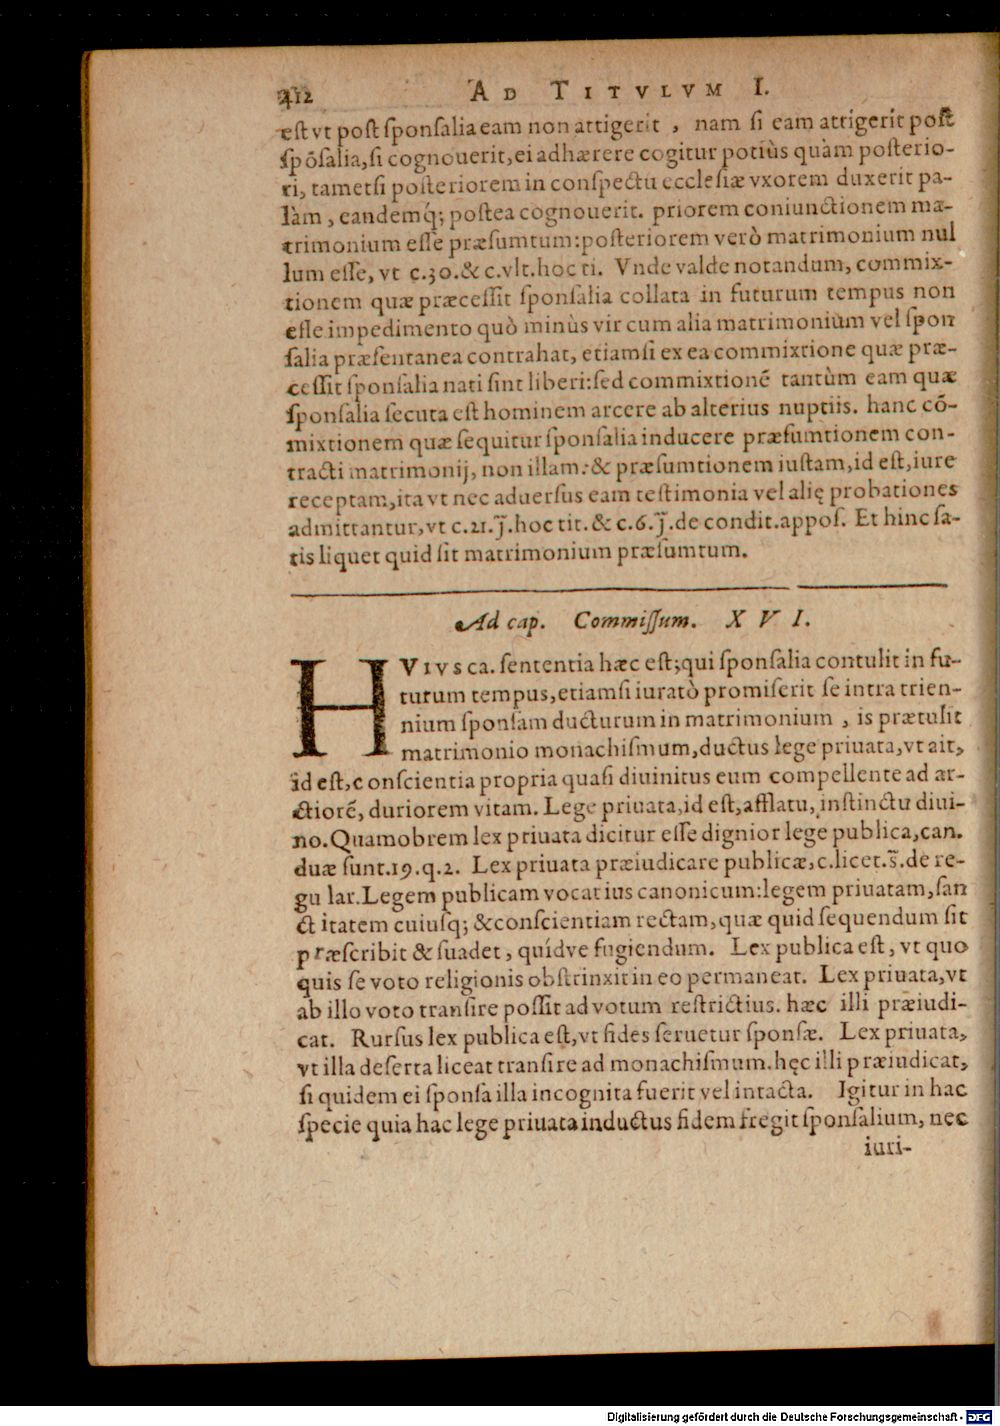 412 AD TITVLVM I.
est vt post sponsalia eam non attigerit , nam si eam attigerit post
spōsalia, si cognouerit, ei adhærere cogitur potiùs quàm posterio-
ri, tametsi posteriorem in conspectu ecclesiæ vxorem duxerit pa-
làm , eandemq́; postea cognouerit. priorem coniunctionem ma-
trimonium esse præsumtum: posteriorem verò matrimonium nul
lum esse, vt c.30.& c.vlt.hoc ti. Vnde valde notandum, commix-
tionem quæ præcessit sponsalia collata in futurum tempus non
esse impedimento quò minùs vir cum alia matrimonium vel spon
salia præsentanea contrahat, etiamsi ex ea commixtione quæ præ-
cessit sponsalia nati sint liberi: sed commixtionē tantùm eam quæ
sponsalia secuta est hominem arcere ab alterius nuptiis. hanc cō-
mixtionem quæ sequitur sponsalia inducere præsumtionem con-
tracti matrimonij, non illam: & præsumtionem iustam, id est, iure
receptam, ita vt nec aduersus eam testimonia vel alię probationes
admittantur, vt c.21.j̃.hoc tit.& c.6.j̃.de condit.appos. Et hinc sa-
tis liquet quid sit matrimonium præsumtum.
Ad cap. Commissum. XVI.
HVIVS ca. sententia hæc est; qui sponsalia contulit in fu-
turum tempus, etiamsi iuratò promiserit se intra trien-
nium sponsam ducturum in matrimonium , is prætulit
matrimonio monachismum, ductus lege priuata, vt ait,
id est, conscientia propria quasi diuinitus eum compellente ad ar-
ctiorē, duriorem vitam. Lege priuata, id est, afflatu, instinctu diui-
no. Quamobrem lex priuata dicitur esse dignior lege publica, can.
duæ sunt.19.q.2. Lex priuata præiudicare publicæ, c.licet.s̃.de re-
gu lar. Legem publicam vocat ius canonicum: legem priuatam, san
ct itatem cuiusq; & conscientiam rectam, quæ quid sequendum sit
præscribit & suadet , quídve fugiendum. Lex publica est, vt quo
quis se voto religionis obstrinxit in eo permaneat. Lex priuata, vt
ab illo voto transire possit ad votum restrictius. hæc illi præiudi-
cat. Rursus lex publica est, vt fides seruetur sponsæ. Lex priuata,
vt illa deserta liceat transire ad monachismum. hęc illi præiudicat,
si quidem ei sponsa illa incognita fuerit vel intacta. Igitur in hac
specie quia hac lege priuata inductus fidem fregit sponsalium, nec
iuri-
Digitalisierung gefördert durch die Deutsche Forschungsgemeinschaft - DFG